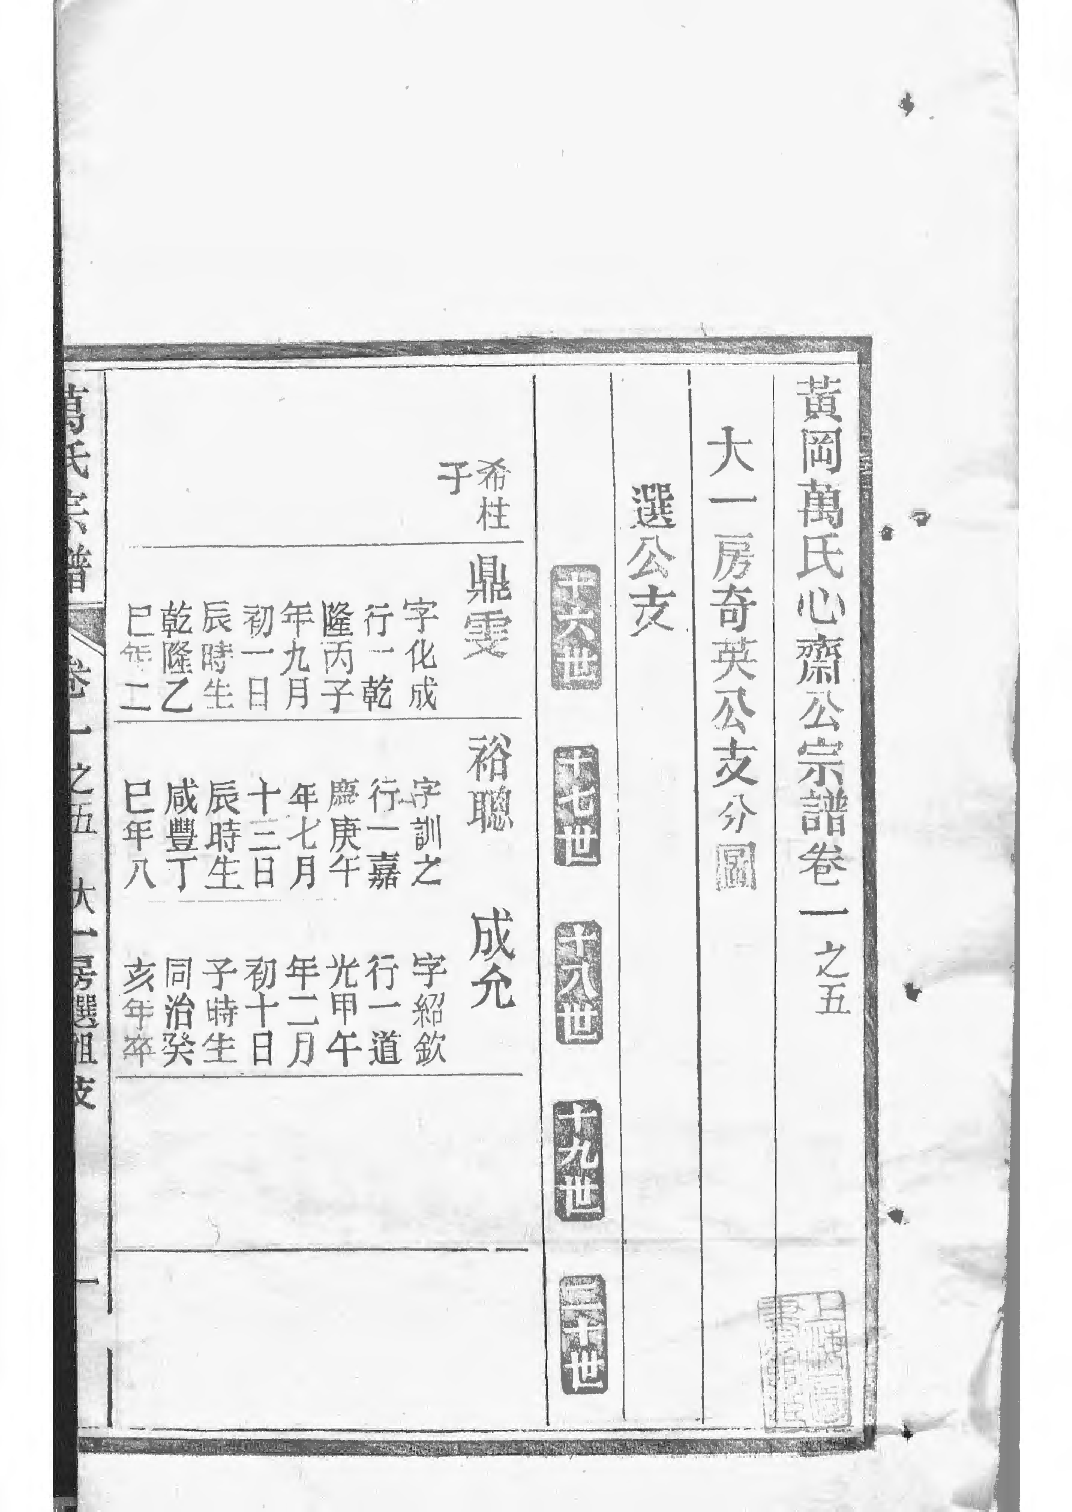 黃岡萬氏心齋公宗譜卷一之五
大一房奇英公支分圖
選公支
十六世
十七世
十八世
十九世
二十世
希柱
子
鼎雯
字化成
行一乾
隆丙子
年九月
初一日
辰時生
乾隆乙
巳年二
裕聰
字訓之
行一嘉
慶庚午
年七月
十三日
辰時生
咸豐丁
巳年八
成允
字紹欽
行一道
光甲午
年二月
初十日
子時生
同治癸
亥年卒
萬氏宗譜
卷一之五
大一房選祖支
一
上海圖
書館藏